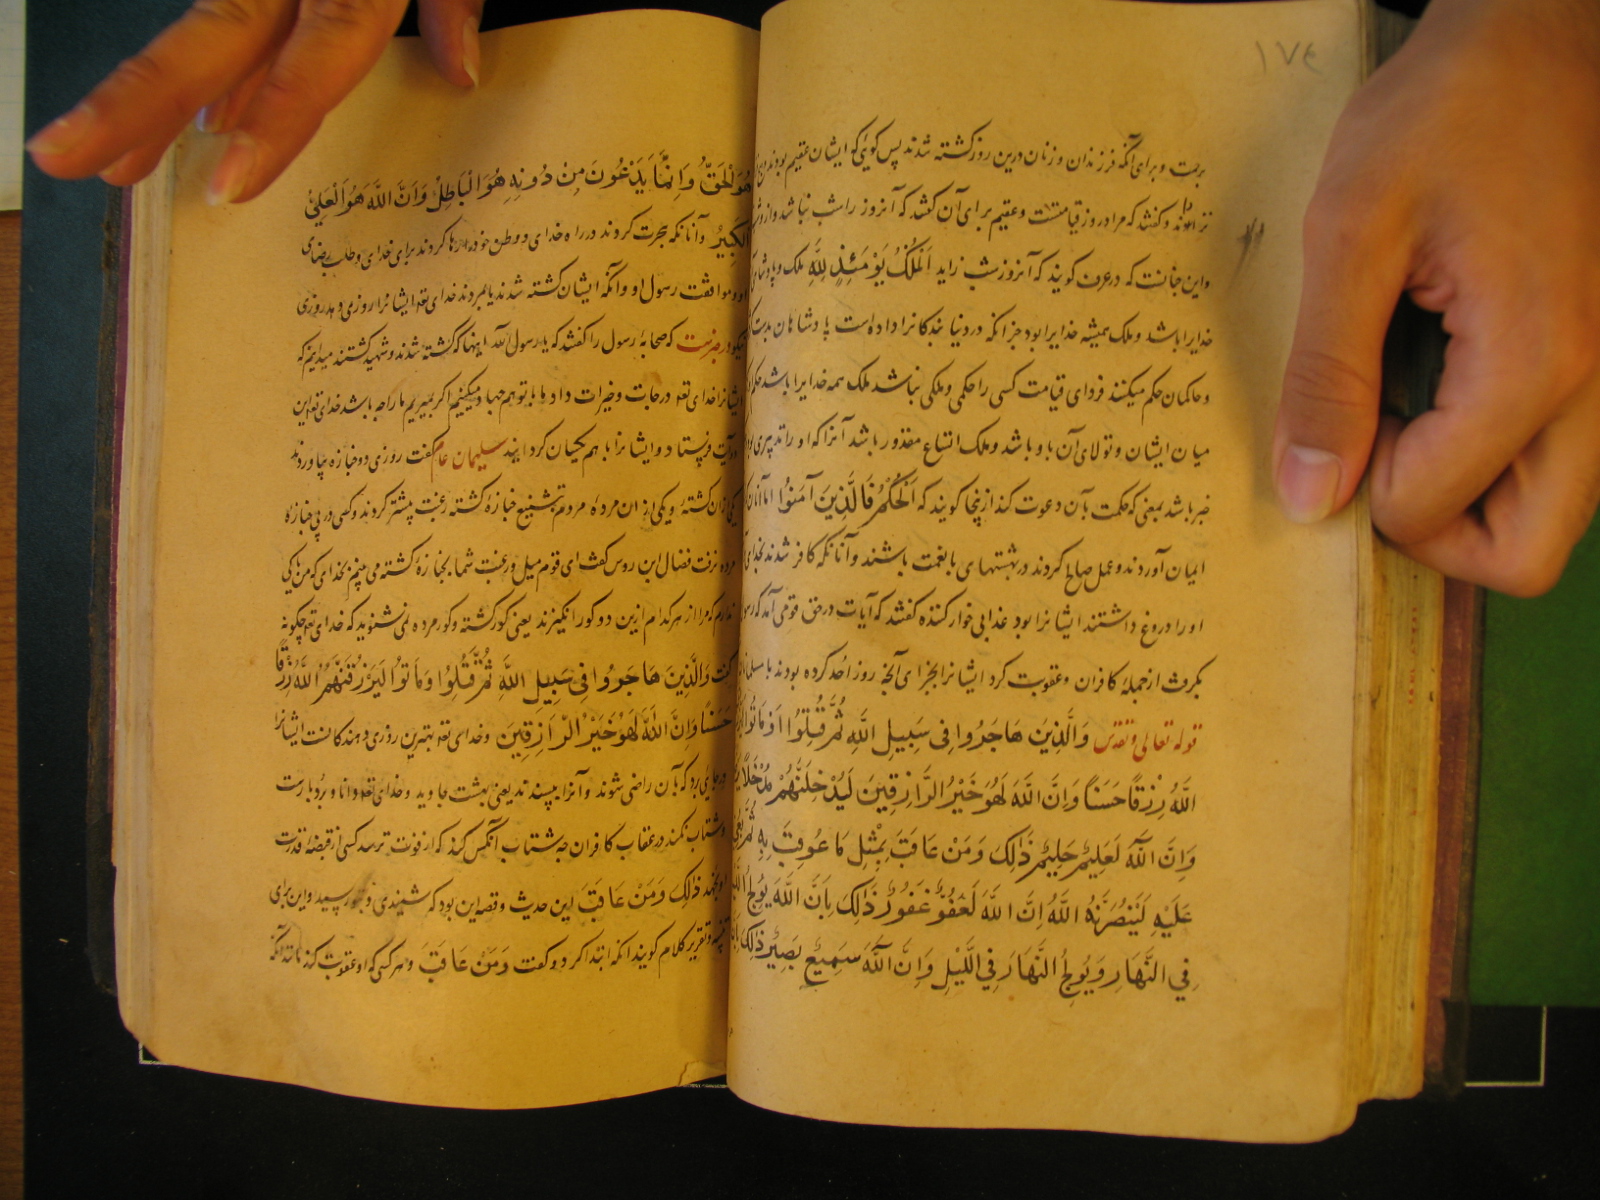 ١٧٤
و برای آنکه فرزندان و زنان درین روز کشته شدند پس کویی که ایشان عقیم بودند
و کفتند که مراد روز قیامتست و عقیم برای آن کفتند که آنروز را شب نباشد
و این چنانست که در عرف کویند که آنروز شب زاید اَلْمُلْكُ يَوْمَئِذٍ لِلّٰهِ ملک و پادشاهی
خدایرا باشد و ملک همیشه خدایرا بود جز آنکه در دنیا بندکانرا داده است پادشاهان
و حاکمان حکم میکنند فردای قیامت کسی را حکمی و ملکی نباشد ملک همه خدایرا باشد
میان ایشان و تولای آن باو باشد و ملک اتساع مقدور باشد آنرا که او را تدبیری بود
خبر باشد بمعنی که حکمت بآن دعوت کند ازینجا کویند که اَلْحُكْمُ فَالَّذِينَ آمَنُوا اما آنان
ایمان آوردند و عمل صالح کردند در بهشتهای با نعمت باشند و آنانکه کافر شدند بخدای
او را دروغ داشتند ایشانرا بود عذابی خوارکننده کفتند که آیات در حق قومی آمد که
از جملهٔ کافران و عقوبت کرد ایشانرا بجزای آنچه روز احد کرده بودند با
قوله تعالی و تقدس وَالَّذِينَ هَاجَرُوا فِي سَبِيلِ اللّٰهِ ثُمَّ قُتِلُوا أَوْ مَاتُوا
اللّٰهُ رِزْقًا حَسَنًا وَإِنَّ اللّٰهَ لَهُوَ خَيْرُ الرَّازِقِينَ لَيُدْخِلَنَّهُمْ مُدْخَلًا
وَإِنَّ اللّٰهَ لَعَلِيمٌ حَلِيمٌ ذٰلِكَ وَمَنْ عَاقَبَ بِمِثْلِ مَا عُوقِبَ بِهِ ثُمَّ بُغِيَ
عَلَيْهِ لَيَنْصُرَنَّهُ اللّٰهُ إِنَّ اللّٰهَ لَعَفُوٌّ غَفُورٌ ذٰلِكَ بِأَنَّ اللّٰهَ يُولِجُ اللَّيْلَ
فِي النَّهَارِ وَيُولِجُ النَّهَارَ فِي اللَّيْلِ وَأَنَّ اللّٰهَ سَمِيعٌ بَصِيرٌ ذٰلِكَ بِأَنَّ
هُوَ الْحَقُّ وَأَنَّمَا يَدْعُونَ مِنْ دُونِهِ هُوَ الْبَاطِلُ وَأَنَّ اللّٰهَ هُوَ الْعَلِيُّ
الْكَبِيرُ و آنانکه هجرت کردند در راه خدای و وطن خود رها کردند برای خدای و طلب رضای
او و موافقت رسول او و آنکه ایشان کشته شدند یا بمردند خدای تعه ایشانرا روزی دهد روزی
نیکو در خبرست که صحابهٔ رسول را کفتند که یا رسول الله اینها که کشته شدند و شهید کشتند میدانیم که
ایشانرا خدای تعه درجات و خیرات داد و ما با تو هم جهاد میکنیم اکر بمیریم ما را چه باشد خدای تعه این
آیت فرستاد و ایشانرا با هم یکسان کردانید سلیمان عامر کفت روزی دو جنازه بیاوردند
یکی از آن کشته و یکی از آن مرده مردم تشییع جنازهٔ کشته رغبت بیشتر کردند و کسی در پی جنازهٔ
مرده نرفت فضال ابن روس کفت ای قوم میل و رغبت شما بجنازهٔ کشته می بینم بخدای که من باکی
ندارم که مرا از هر کدام ازین دو کور انکیزند یعنی کور کشته و کور مرده نمی شنوید که خدای تعه چکونه
کفت وَالَّذِينَ هَاجَرُوا فِي سَبِيلِ اللّٰهِ ثُمَّ قُتِلُوا وَمَاتُوا لَيَرْزُقَنَّهُمُ اللّٰهُ رِزْقًا
حَسَنًا وَإِنَّ اللّٰهَ لَهُوَ خَيْرُ الرَّازِقِينَ و خدای تعه بهترین روزی دهندکانست ایشانرا
در جایی برد که بآن راضی شوند و آنرا بپسندند یعنی بهشت جاوید و خدای تعه دانا و بردبارست
و شتاب نکند در عقاب کافران چه شتاب آنکس کند که از فوت ترسد کسی از قبضهٔ قدرت
او بجهد ذٰلِكَ وَمَنْ عَاقَبَ این حدیث و قصه این بود که شنیدی و بتو رسید و این برای
تنبیه و تقریر کلام کویند آنکه ابتدا کرد و کفت وَمَنْ عَاقَبَ و هر کسی که او عقوبت کند مانند آنکه